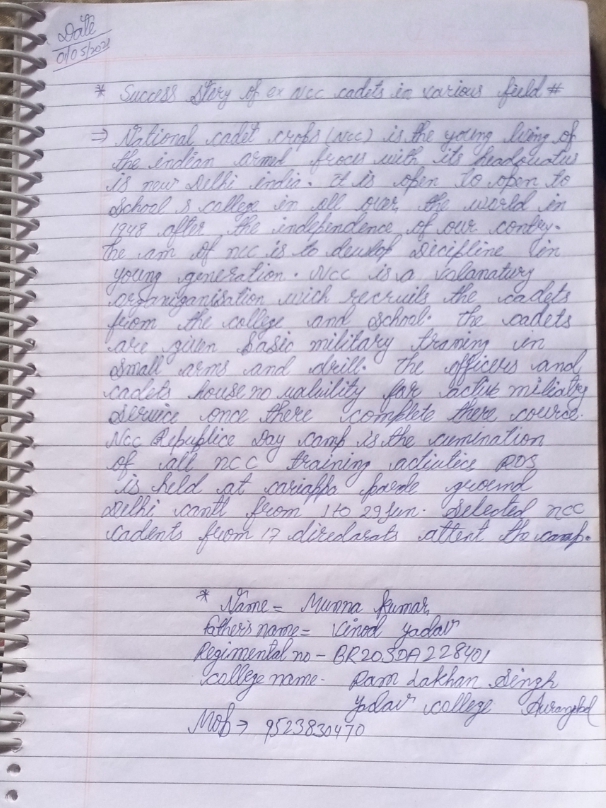 Date
01/05/2021
* Success story of ex NCC cadets in various field #
⇒ National cadet crofs (NCC) is the young living of
the indian armd froces with its headquatus
is new Delhi india. It is open to open to
school & college in all over the world in
1948 after the independence of our contry.
the am of ncc is to develop Decifline in
young generation. NCC is a valanatury
organiganisation wich recruils the cadets
from the college and school. the cadets
are given basic military traning in
small arms and drill. the officers and
cadets house no uability for active military
service once there complete there course.
NCC Republice Day camp is the cumination
of all ncc training activities RDS
is held at cariappa parde ground
Delhi cantt from 1 to 29 Jun. selected ncc
cadents from 17 diredarats attent the camp.
* Name = Munna Kumar
father's name = Vinod yadav
Regimental no - BR20SDA228401
college name - Ram Lakhan Singh
yadav college Aurangbad
Mob → 9523830470